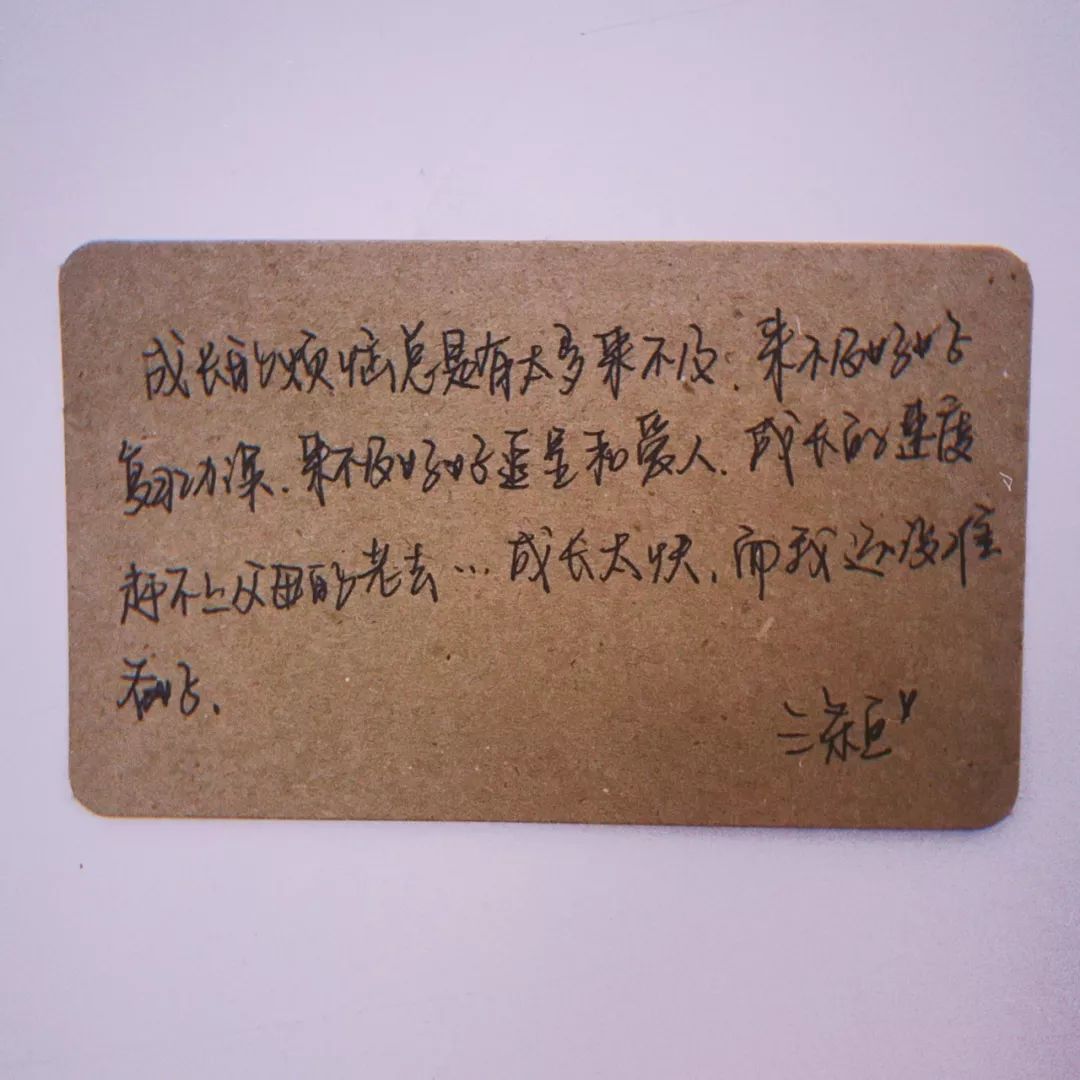 成长的烦恼总是有太多来不及.来不及好好
复习功课.来不及好好追星和爱人.成长的速度
赶不上父母的老去…成长太快,而我还没准
备好.
三